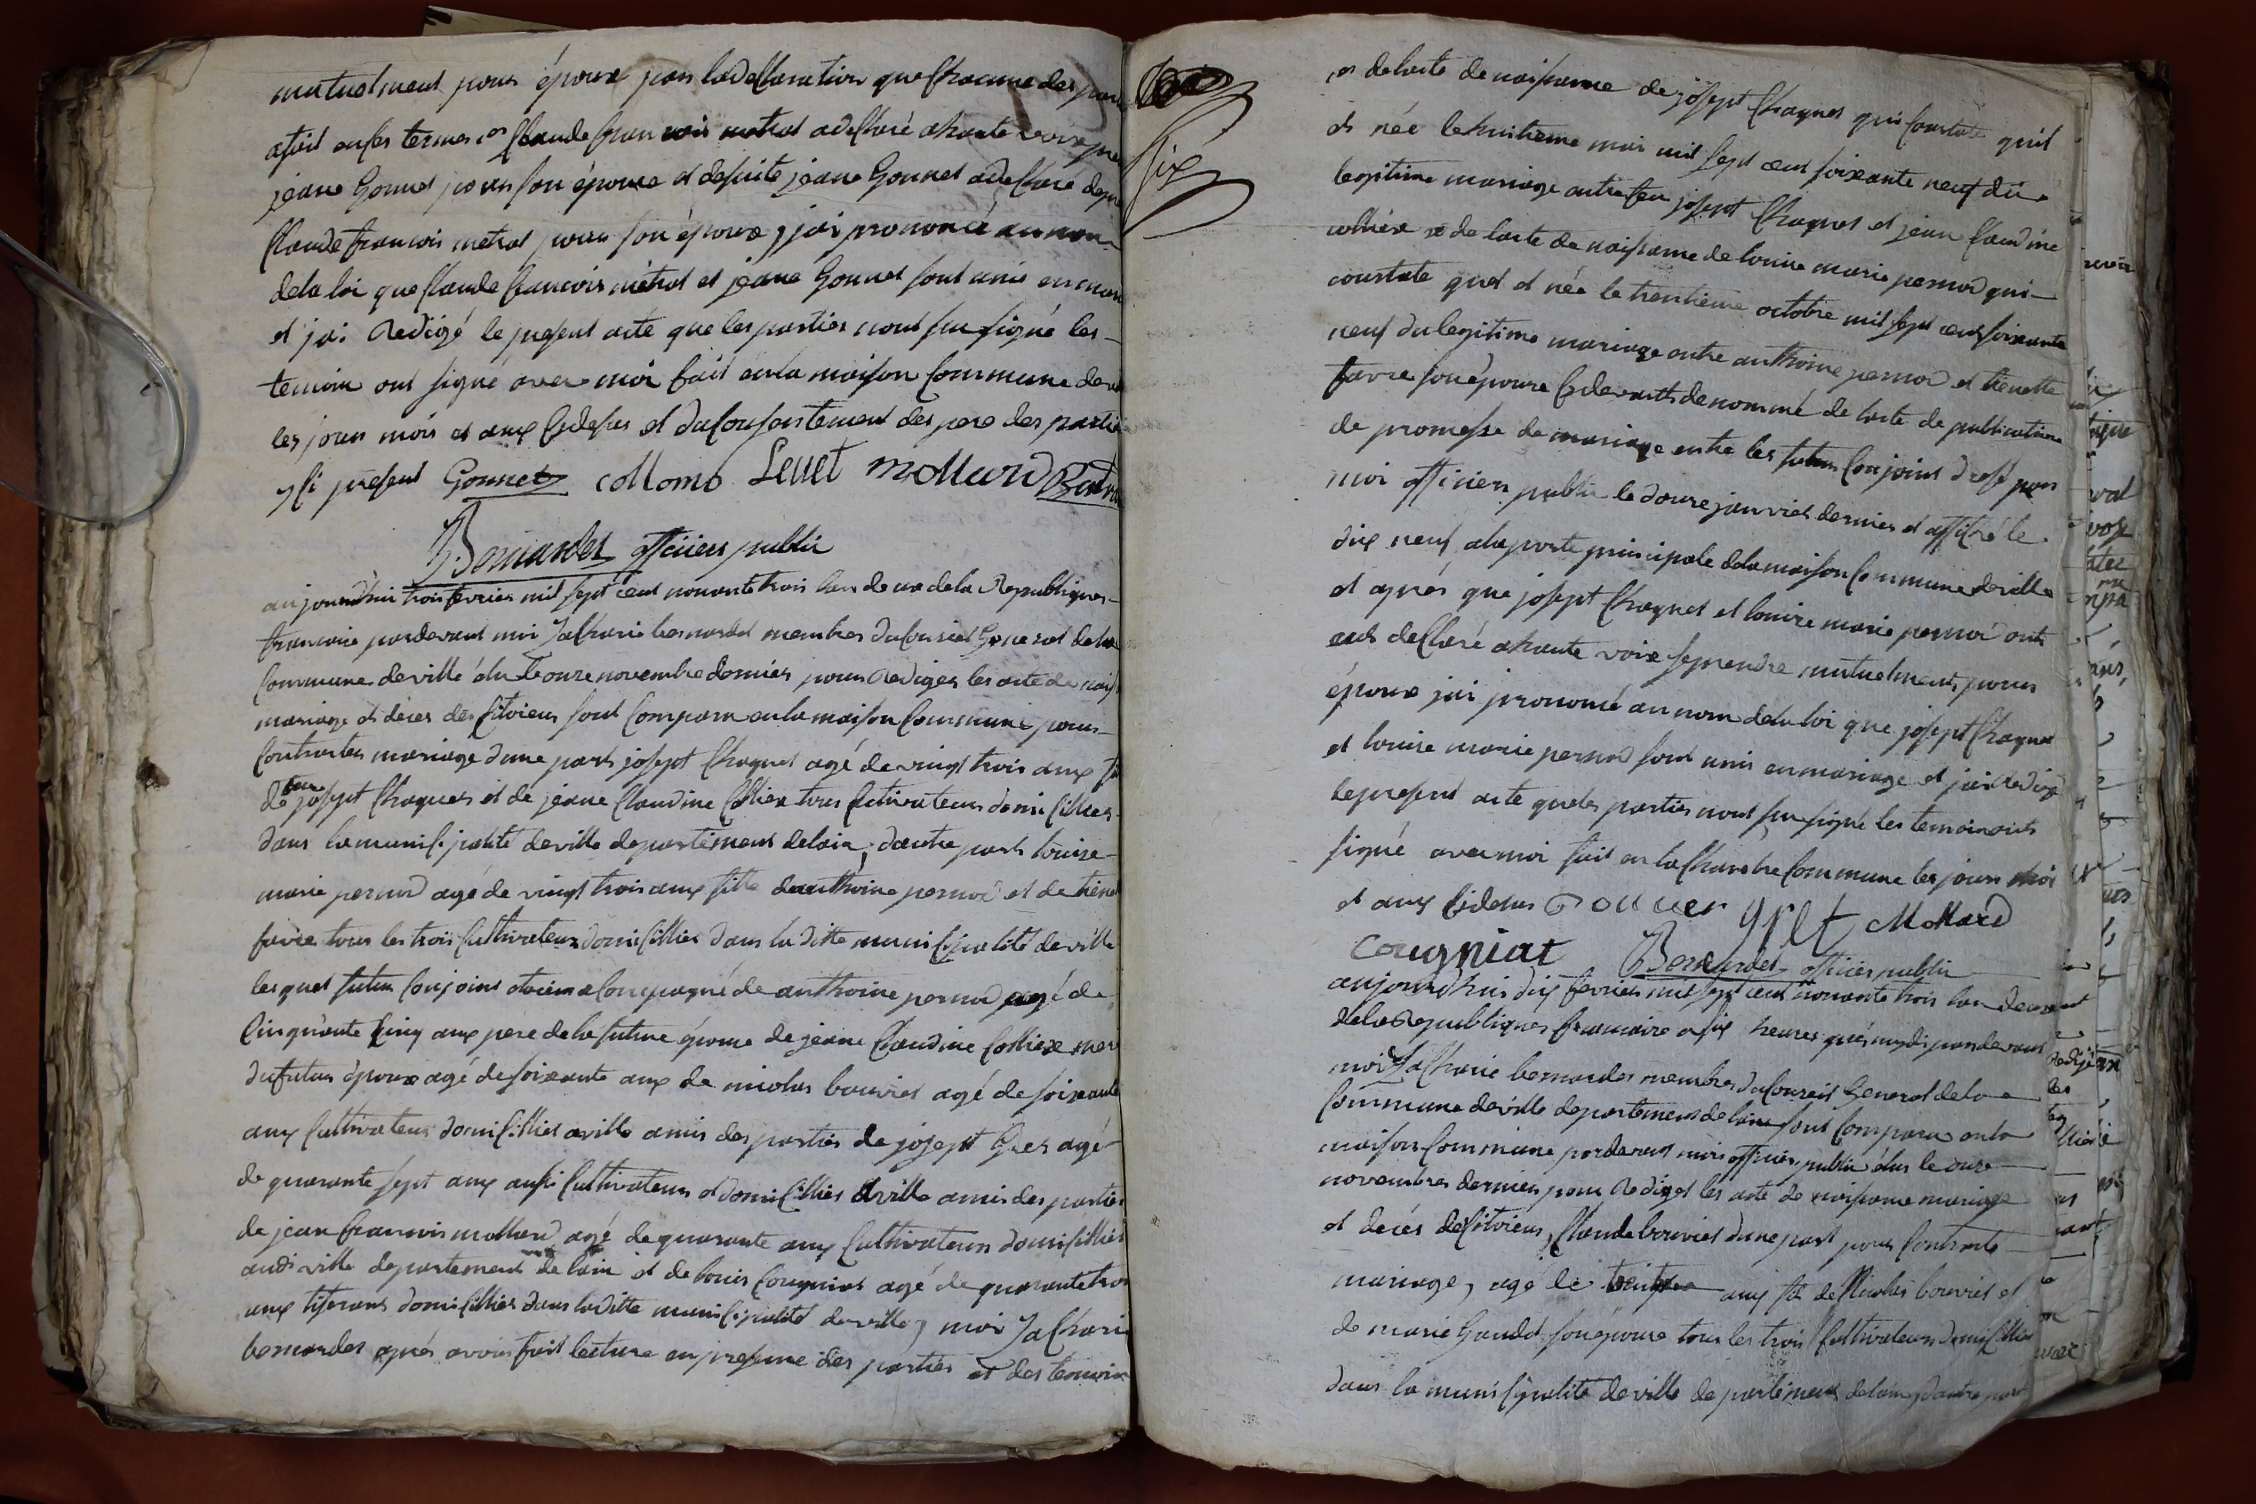 mutuelment pour époux par la declaration que Chacune des par
a fait en ces termes Claude francois metral a declaré a haute voix
jeane Gonnet pour son épouse et desuite jeane Gonnet a declaré
Claude francois metral pour son époux, jai prononcé au nom
de la loi que Claude francois métral et jeane Gonnet sont unis en mari
et jai Redigé le present acte que les parties nont su signé les
temoin ont signé avec moi fait en la maison Commune de
les jours mois et ans Cydesus et du Consentement des pere des partie
yci present Gonnet collomb Levet mollard
Bernardet officier public
aujourdhui trois fevrier mil sept cent nonante trois lan deux de la Republiques
francaise pardevant moi Jacharie bernardet membres du Conseil General de la
Commune de ville élu le onze novembre dernier pour Rediger les acte de nais
mariage et déces des Citoiens sont Comparu en la maison Commune pour
Contracter mariage dune part josept Chagnet agé de vingt trois ans
de feu josept Chagnet et de jeane Claudine Colliex tous Cultivateurs domicilliés
dans la municipalité de ville departement de lain, dautre part louise
marie pernod agé de vingt trois ans fille danthoine pernod et de tiene
favre tous les trois Cultivateurs domicilliés dans la ditte municipalité de ville
lesquel futur Conjoins étoient acCompagné de anthoine pernod agé de
Cinquante Cinq ans pere de la future épouse de jeane Claudine Colliex mere
du futur époux agé de soixante ans de nicolas bouvier agé de soixante
ans Cultivateur domicillié a ville amis des parties de josept Gres agé
de quarante sept ans aussi Cultivateur et domicillié a ville amis des parties
de jean francois mollard agé de quarante ans Cultivateur domicillié
audi ville departement de lain et de louis Cougniat agé de quarante trois
ans tiserans domicillié dans la ditte municipalité de ville, moi Jacharie
bernardet aprés avoir fait lecture en presence des parties et des temoins
six
et de lacte de naissance de josept Chagnet qui Constate quil
et née le huitieme mai mil sept cent soixante neuf du
legitime mariage entre feu josept Chagnet et jean Claudine
colliex et de lacte de naissance de louise marie pernod qui
constate quel et née le trentieme octobre mil sept cent soixante
neuf du legitime mariage entre anthoine pernod et tienette
favre son épouse Cydevants denommé de lacte de publications
de promesse de mariage entre les futurs Conjoins dressé par
moi officier public le douze janvier dernier et affiché le
dix neuf a la porte principale de la maison Commune de ville
et aprés que josept Chagnet et louise marie pernod onts
euts declaré a haute voix se prendre mutuelments pour
époux jai prononcé au nom de la loi que josept Chagnet
et louise marie pernod sont unis en mariage et jai Redigé
le present acte que les parties nont su signé les temoin onts
signé avec moi fait en la Chambre Commune les jours mois
et ans Cidesus Bouvier Gret Mollard
Cougniat Bernardet officier public
aujourdhui dix fevrier mil sept cent nonante trois lan deux
de la Republiques francaise a six heures aprés midi pardevant
moi Jacharie bernardet membres du Conseil General de la
Commune de ville departement de lain sont Comparu en la
maison Commune pardevant moi officier public élus le onze
novembres dernier pour Rediger les acte de naissance mariage
et décés de Citoiens, Claude bouvier dune part pour Contracte
mariage, agé de trente ans fils de Nicolas bouvier et
de marie Gaudet son épouse tous les trois Cultivateurs domicilliés
dans la municipalité de ville departement de lain, dautre part